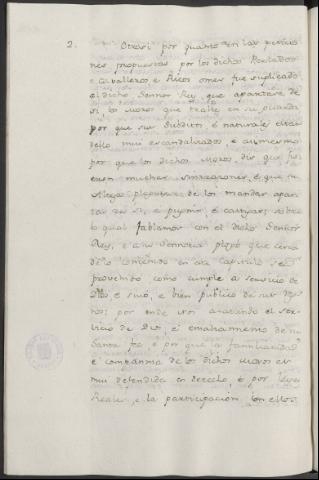 2. Otrosi por quanto en las peticio
nes propuestas por los dichos Perlados
e Cavalleros e Ricos omes fue suplicado
al dicho Sennor Rey que apartase de
si los moros que trahe en su guarda
por que sus subditos e naturales estan
dello muy escandalizados, e asimesmo
por que los dichos moros, diz que fici
esen muchas sinrazones, e que su
Alteza pluguiese de los mandar apar
tar de si, e punir, e castigar, sobre
lo qual fablamos con el dicho Sennor
Rey, e a su Sennoria plogó que cerca
de lo contenido en este capitulo sea
proveido como cumple a servicio de
Dios e suió, e bien publico de sus Reg
nos; por ende nos acatando el ser
vicio de Dios, e ensalzamiento de su
Santa fe e por que la familiaridad
e compannia de los dichos moros es
mui defendida en derecho, e por Leyes
Reales, e la participación con ellos,